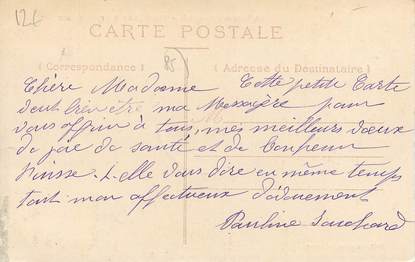 12€
CARTE POSTALE
Correspondance
85
Adresse du Destinataire
Chère Madame Cette petite Carte
veut bien être ma Messagère pour
vous offrir à tous, mes meilleurs vœux
de joie de santé et de bonheur
Puisse-t-elle vous dire en même temps
tout mon affectueux dévouement
Pauline